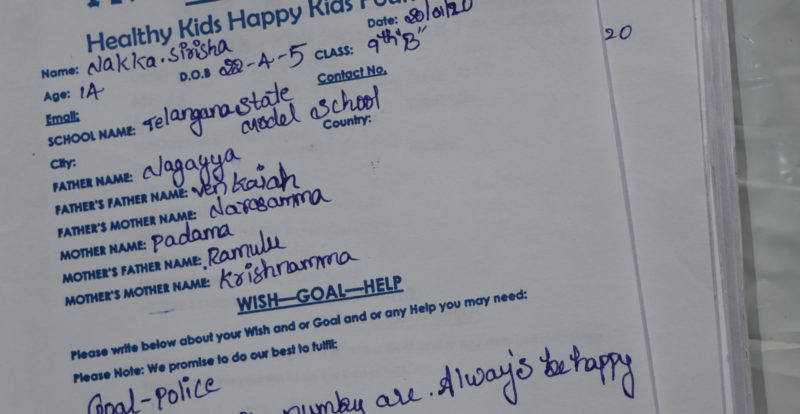 Healthy Kids Happy Kids
Name: Nakka. Sirisha Date: 20/01/20
Age: 14 D.O.B 22-4-5 CLASS: 9th "B"
Email: Contact No.
SCHOOL NAME: Telangana State model School
City: Country:
FATHER NAME: Nagayya
FATHER'S FATHER NAME: Venkaiah
FATHER'S MOTHER NAME: Narasamma
MOTHER NAME: Padama
MOTHER'S FATHER NAME: Ramulu
MOTHER'S MOTHER NAME: Krishnamma
WISH—GOAL—HELP
Please write below about your Wish and or Goal and or any Help you may need:
Please Note: We promise to do our best to fulfil:
Goal - Police
are. Always be happy
20